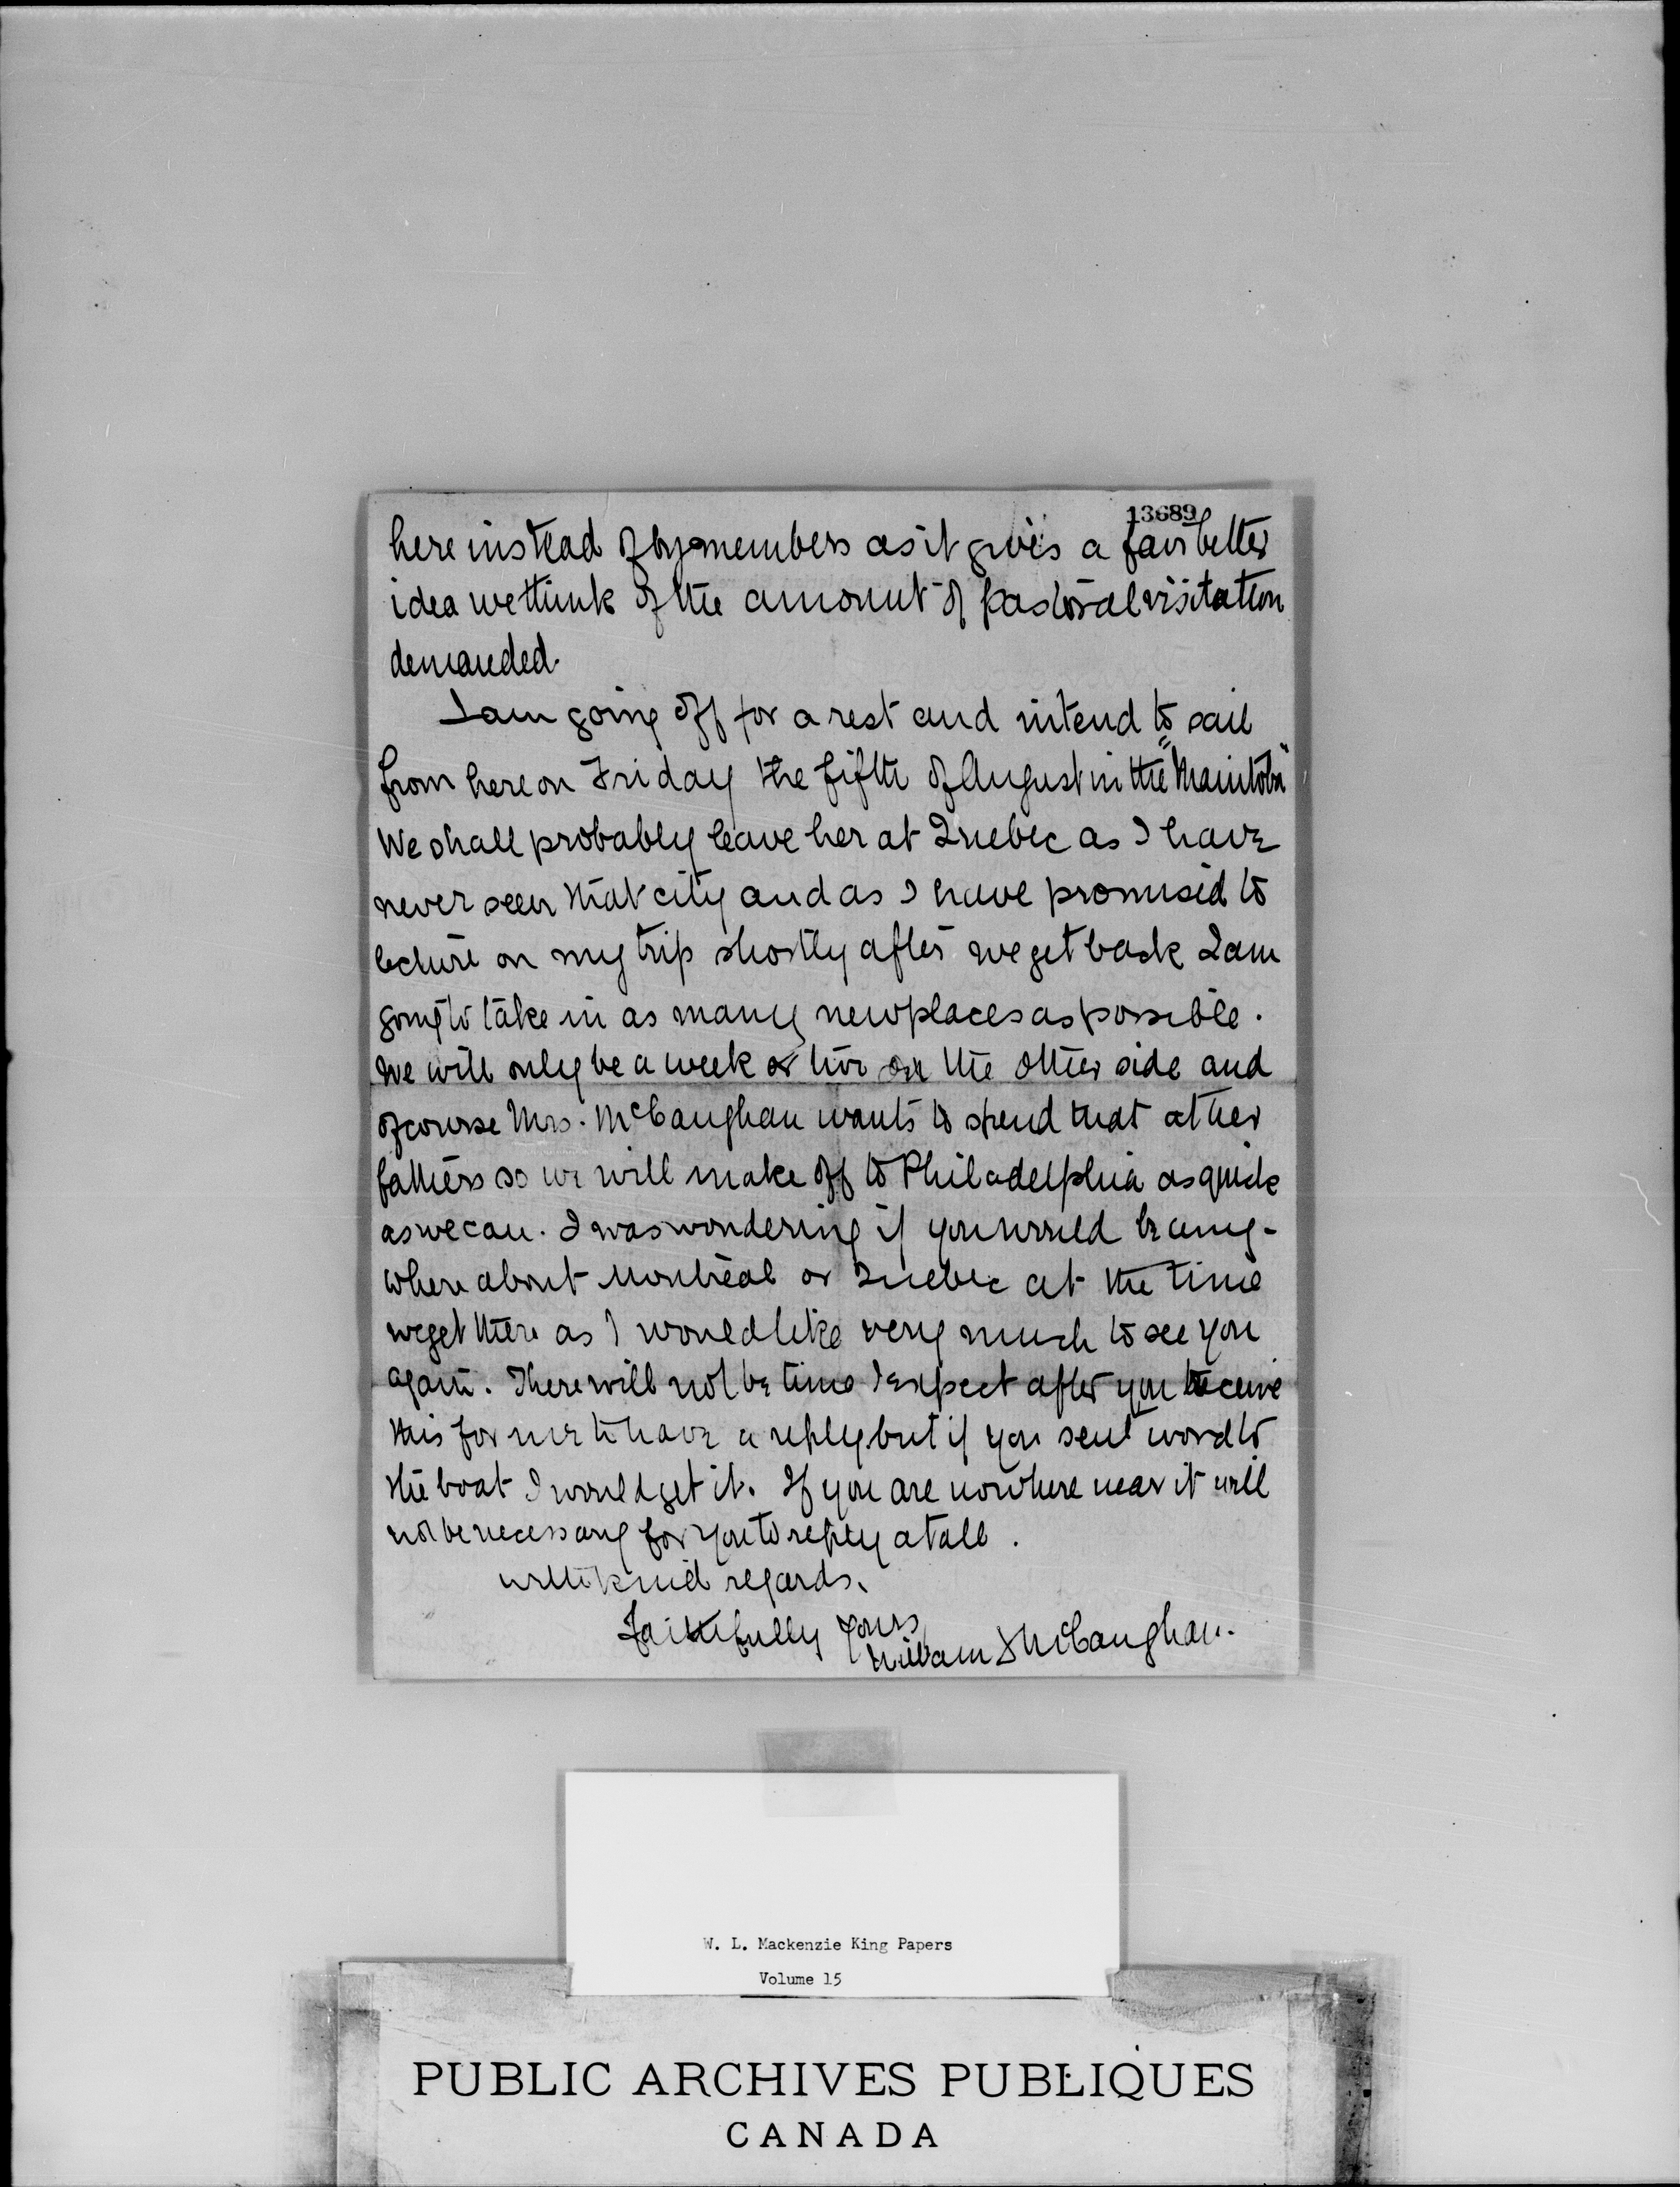 13689
here instead of by members as it gives a fair better
idea we think of the amount of pastoral visitation
demanded.
I am going off for a rest and intend to sail
from here on Friday the fifth of August in the "Manitoba"
We shall probably leave her at Quebec as I have
never seen that city and as I have promised to
lecture on my trip shortly after we get back I am
going to take in as many new places as possible.
We will only be a week or two on the other side and
of course Mrs. McCaughan wants to spend that at her
fathers so we will make off to Philadelphia as quick
as we can. I was wondering if you would be any-
where about Montreal or Quebec at the time
we get there as I would like very much to see you
again. There will not be time I expect after you receive
this for me to have a reply but if you sent word to
the boat I would get it. If you are nowhere near it will
not be necessary for you to reply at all.
With kind regards.
Faithfully yours,
William J McCaughan.
W. L. Mackenzie King Papers
Volume 15
PUBLIC ARCHIVES PUBLIQUES
CANADA